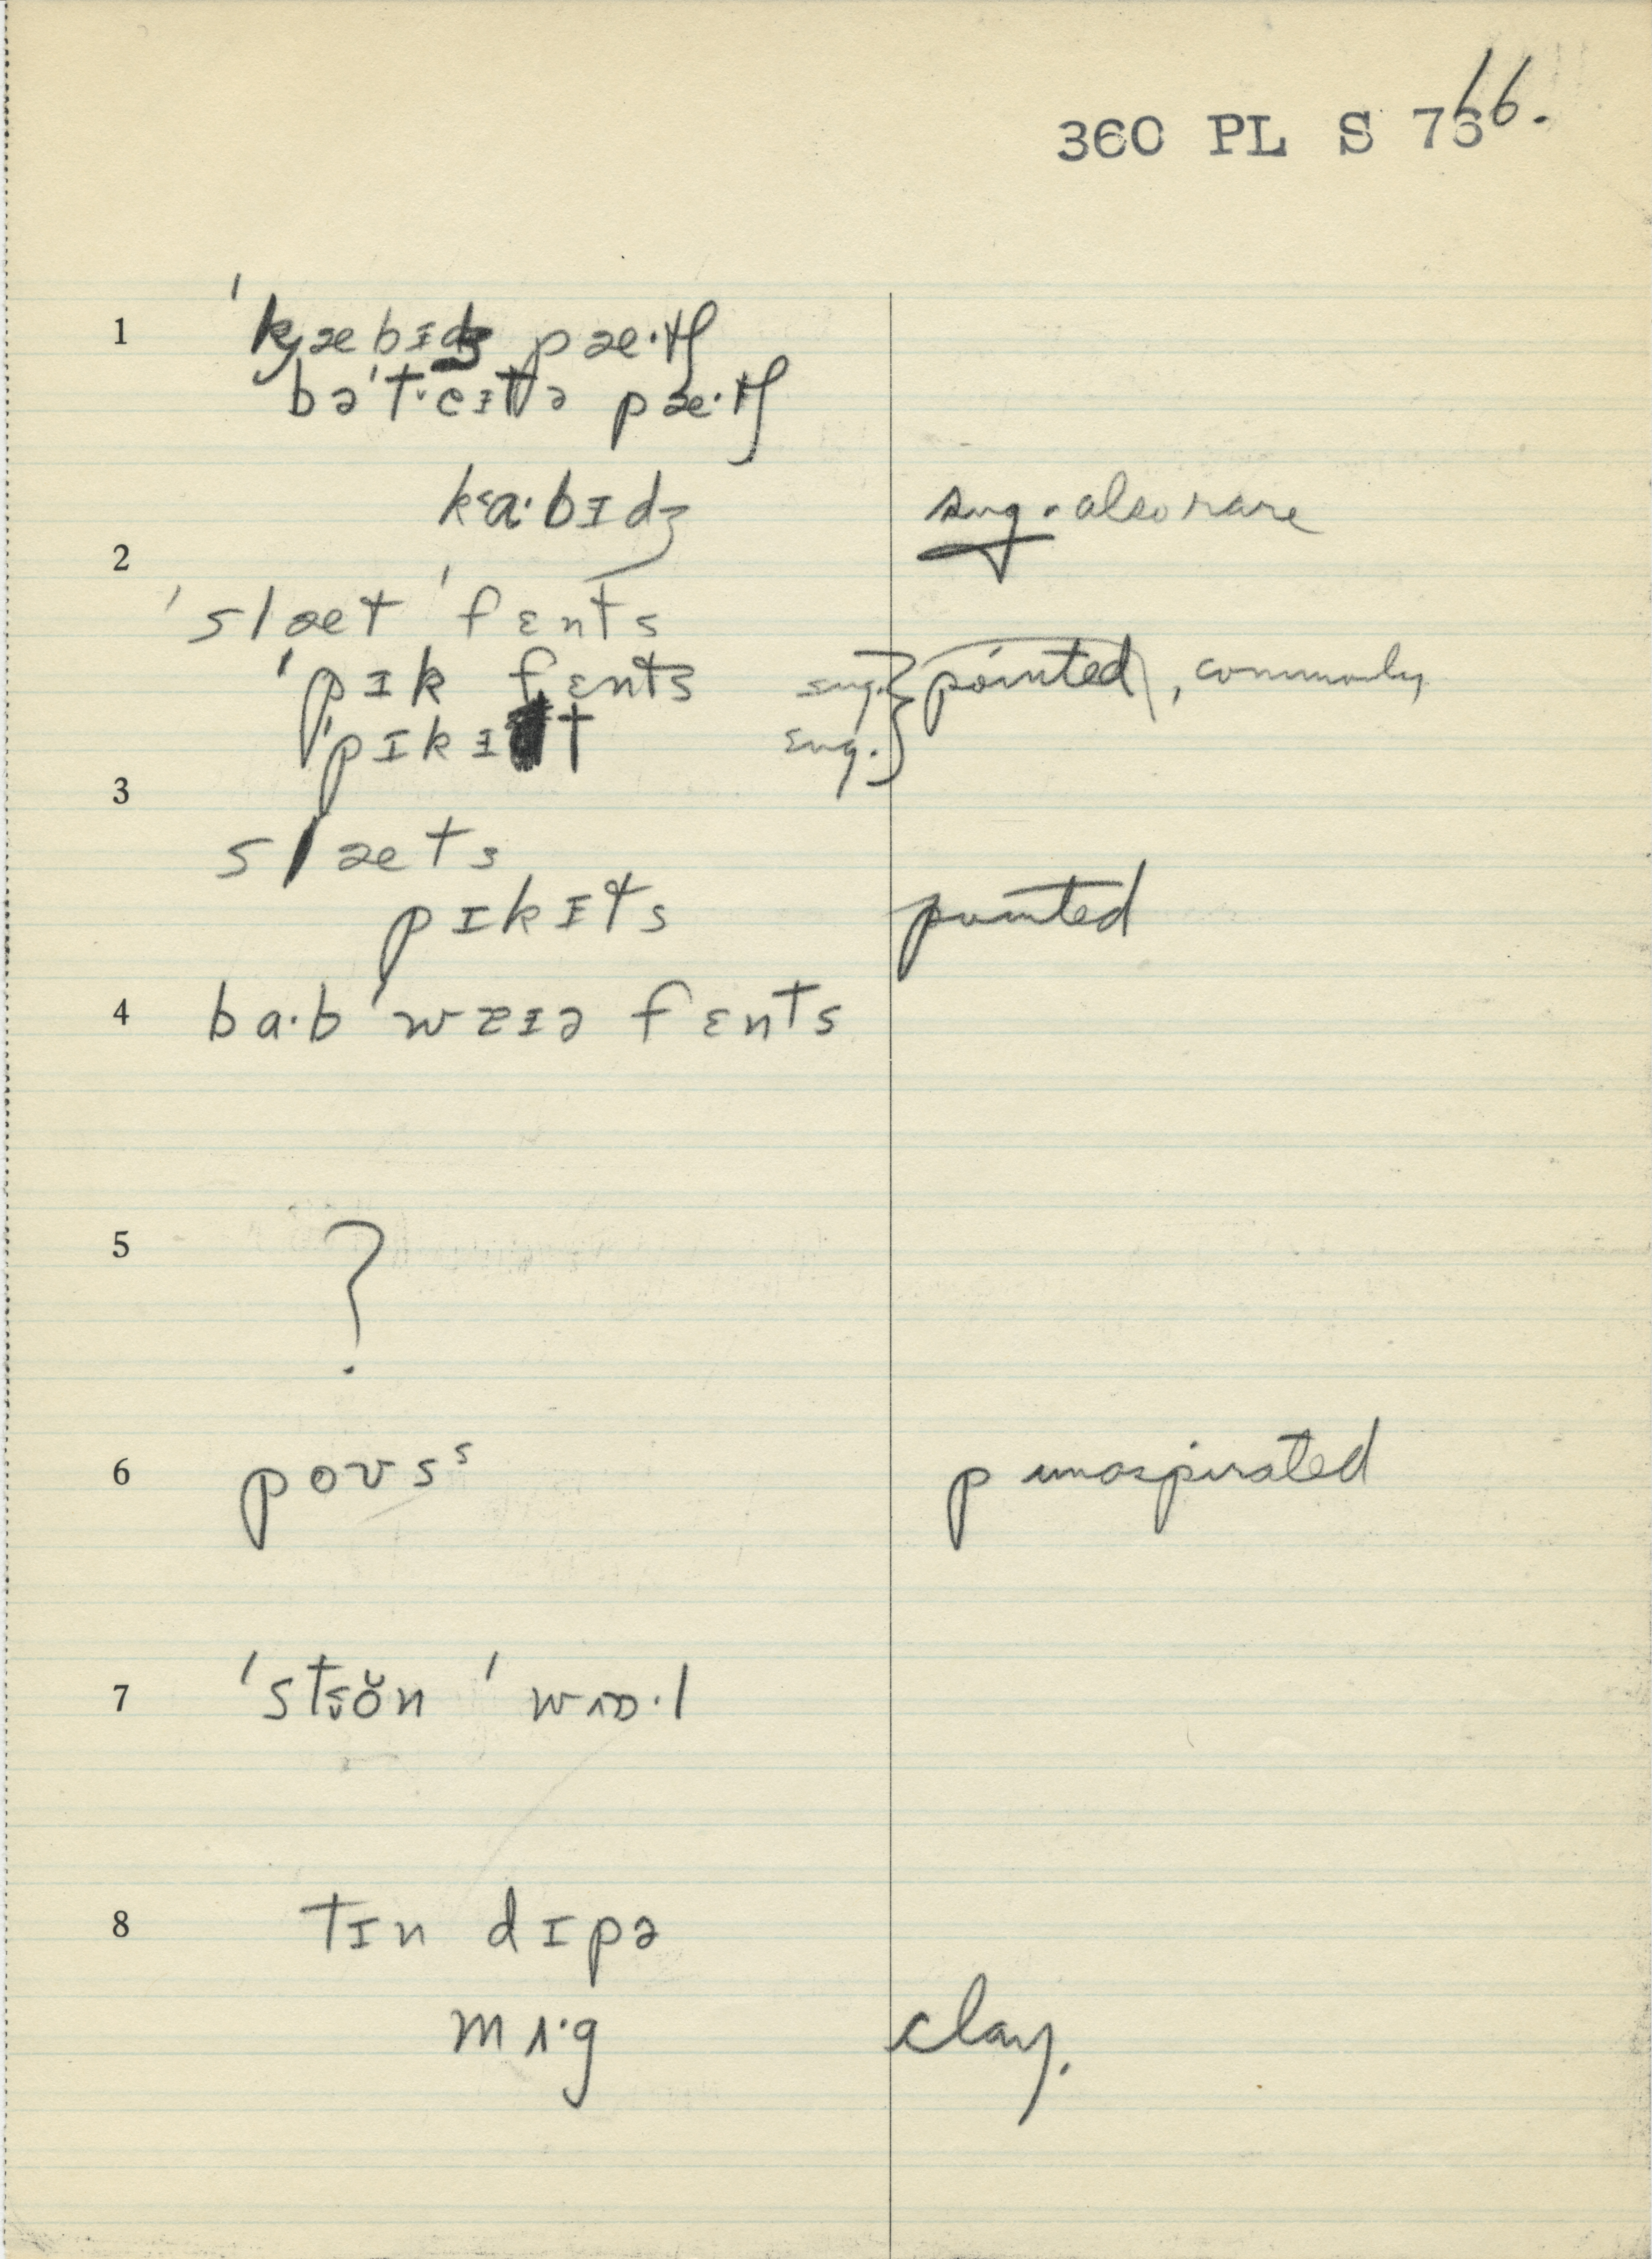 360 PL S 76
66.
1 ˈkjæbɪdʒ pæ·tʃ
bəˈt·eɪtə pæ·tʃ
kʿa·bɪdʒ sug. also rare
2
ˈslæt ˈfɛnts
ˈpɪk fɛnts sug. pointed, commonly
ˈpɪkɪt sug.
3
slæts
pɪkɪts pointed
4 ba·bˈwɛɪə fɛnts
5 ?
6 poʊsˢ p unaspirated
7 ˈstön ˈwɒ·l
8 tɪn dɪpə
mʌ·g clay.